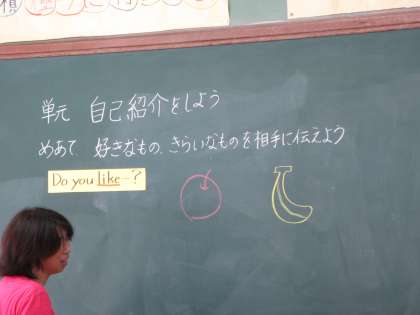 単元 自己紹介をしよう
めあて 好きなもの、きらいなものを相手に伝えよう
Do you like…?